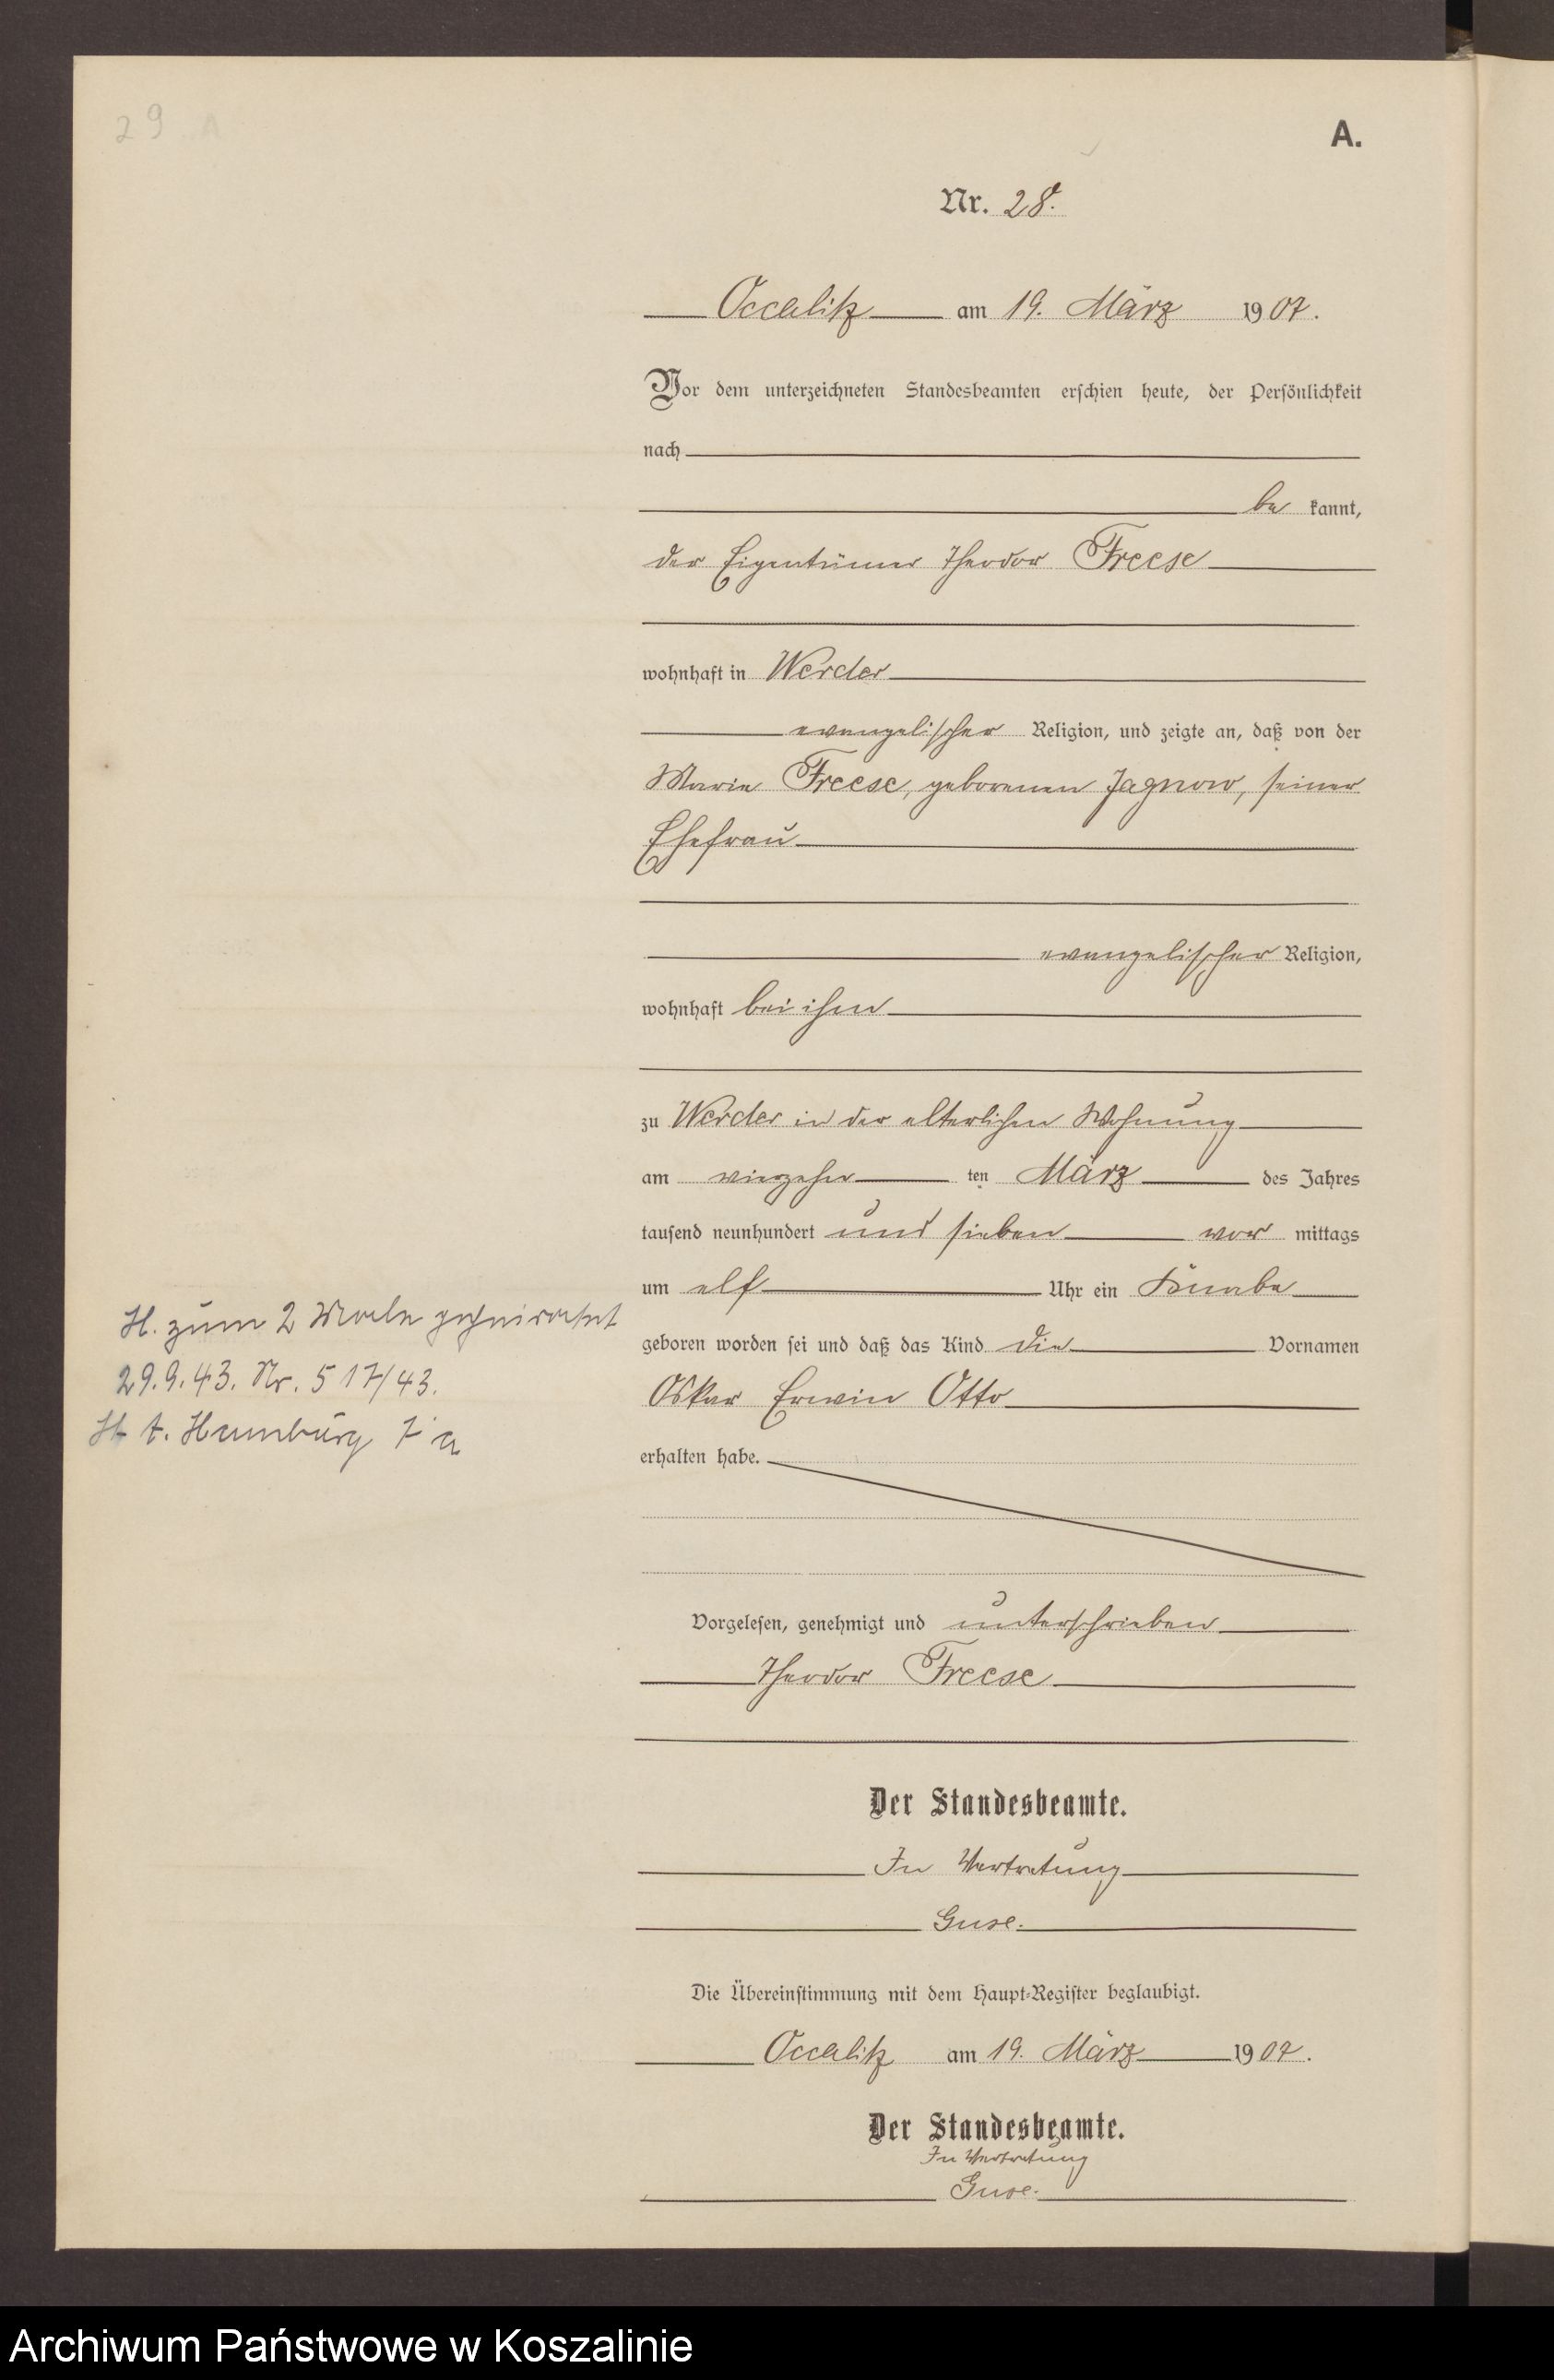 29 A
A.
Nr. 28.
Occalitz am 19. März 1907.
Vor dem unterzeichneten Standesbeamten erschien heute, der Persönlichkeit
nach
be kannt,
der Eigentümer Theodor Freese
wohnhaft in Werder
evangelischer Religion, und zeigte an, daß von der
Marie Freese, geborenen Jagnow, seiner
Ehefrau
evangelischer Religion,
wohnhaft bei ihm
zu Werder in der elterlichen Wohnung
am vierzehn ten März des Jahres
tausend neunhundert und sieben vor mittags
um elf Uhr ein Knabe
geboren worden sei und daß das Kind die Vornamen
Oskar Erwin Otto
erhalten habe.
H. zum 2 Male geheiratet
29.9.43. Nr. 517/43.
St A. Hamburg 1 a
Vorgelesen, genehmigt und unterschrieben
Theodor Freese
Der Standesbeamte.
In Vertretung
Guse.
Die Übereinstimmung mit dem Haupt-Register beglaubigt.
Occalitz am 19. März 1907.
Der Standesbeamte.
In Vertretung
Guse.
Archiwum Państwowe w Koszalinie